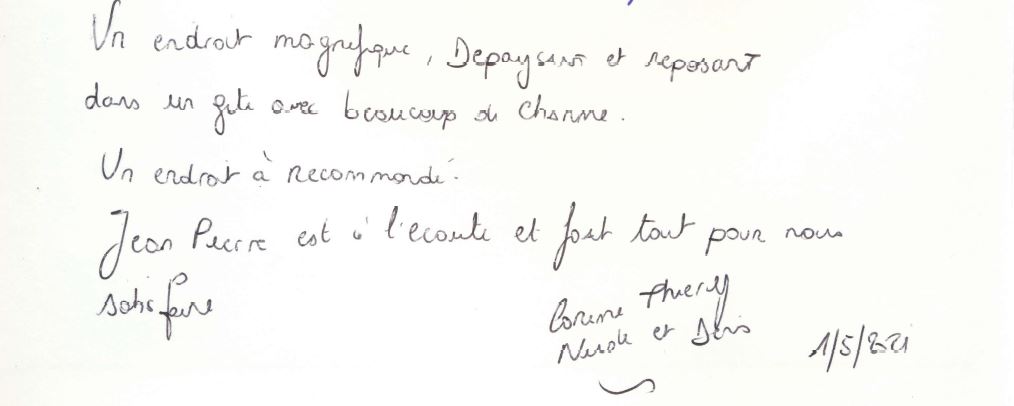 Un endroit magnifique, Depaysant et reposant
dans un gite avec beaucoup de charme.
Un endroit à recommandé.
Jean Pierre est à l'ecoute et fait tout pour nous
satisfaire
Corinne Thierry
Nicole et Denis
1/5/2021